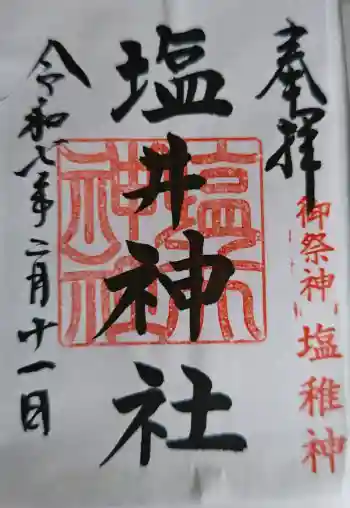 奉拝
御祭神
塩稚神
塩井神社
令和七年二月十一日